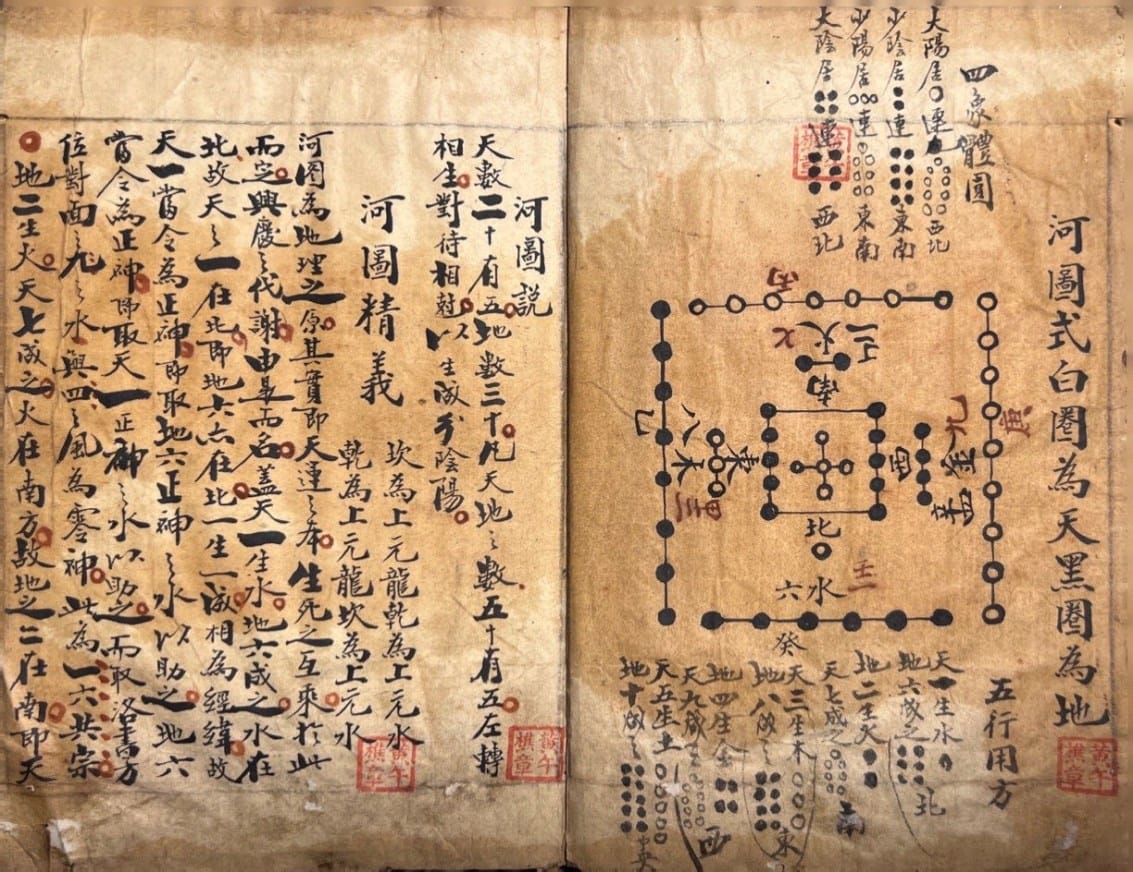 河圖式白圈為天黑圈為地
四象體圓
太陽居連西北
少陰居連東南
少陽居連東南
太陰居連西北
丙
七火二
南
八木
東
三
北
水六
壬
癸
西
九金
庚
五行用方
天一生水
地六成之北
地二生火
天七成之南
天三生木
地八成之東
地四生金
天九成西
天五生土
地十成之
黃午樵章
河圖説
天數二十有五地數三十凡天地之數五十有五左轉
相生對待相尅以生成分陰陽
河圖精義
坎為上元龍乾為上元水
乾為上元龍坎為上元水
河圖為地理之原其實即天運之本生死之互乘於此
而定興廢之代謝由是而名蓋天一生水地六成之水在
北故天之一在北即地六亦在北一生一成相為經緯故
天一當令為正神即取地六正神之水以助之地六
當令為正神即取天一正神之水以助之而取洛書方
位對面九之水與四之風為零神此為一六共宗
地二生火天七成之火在南方故地之二在南即天